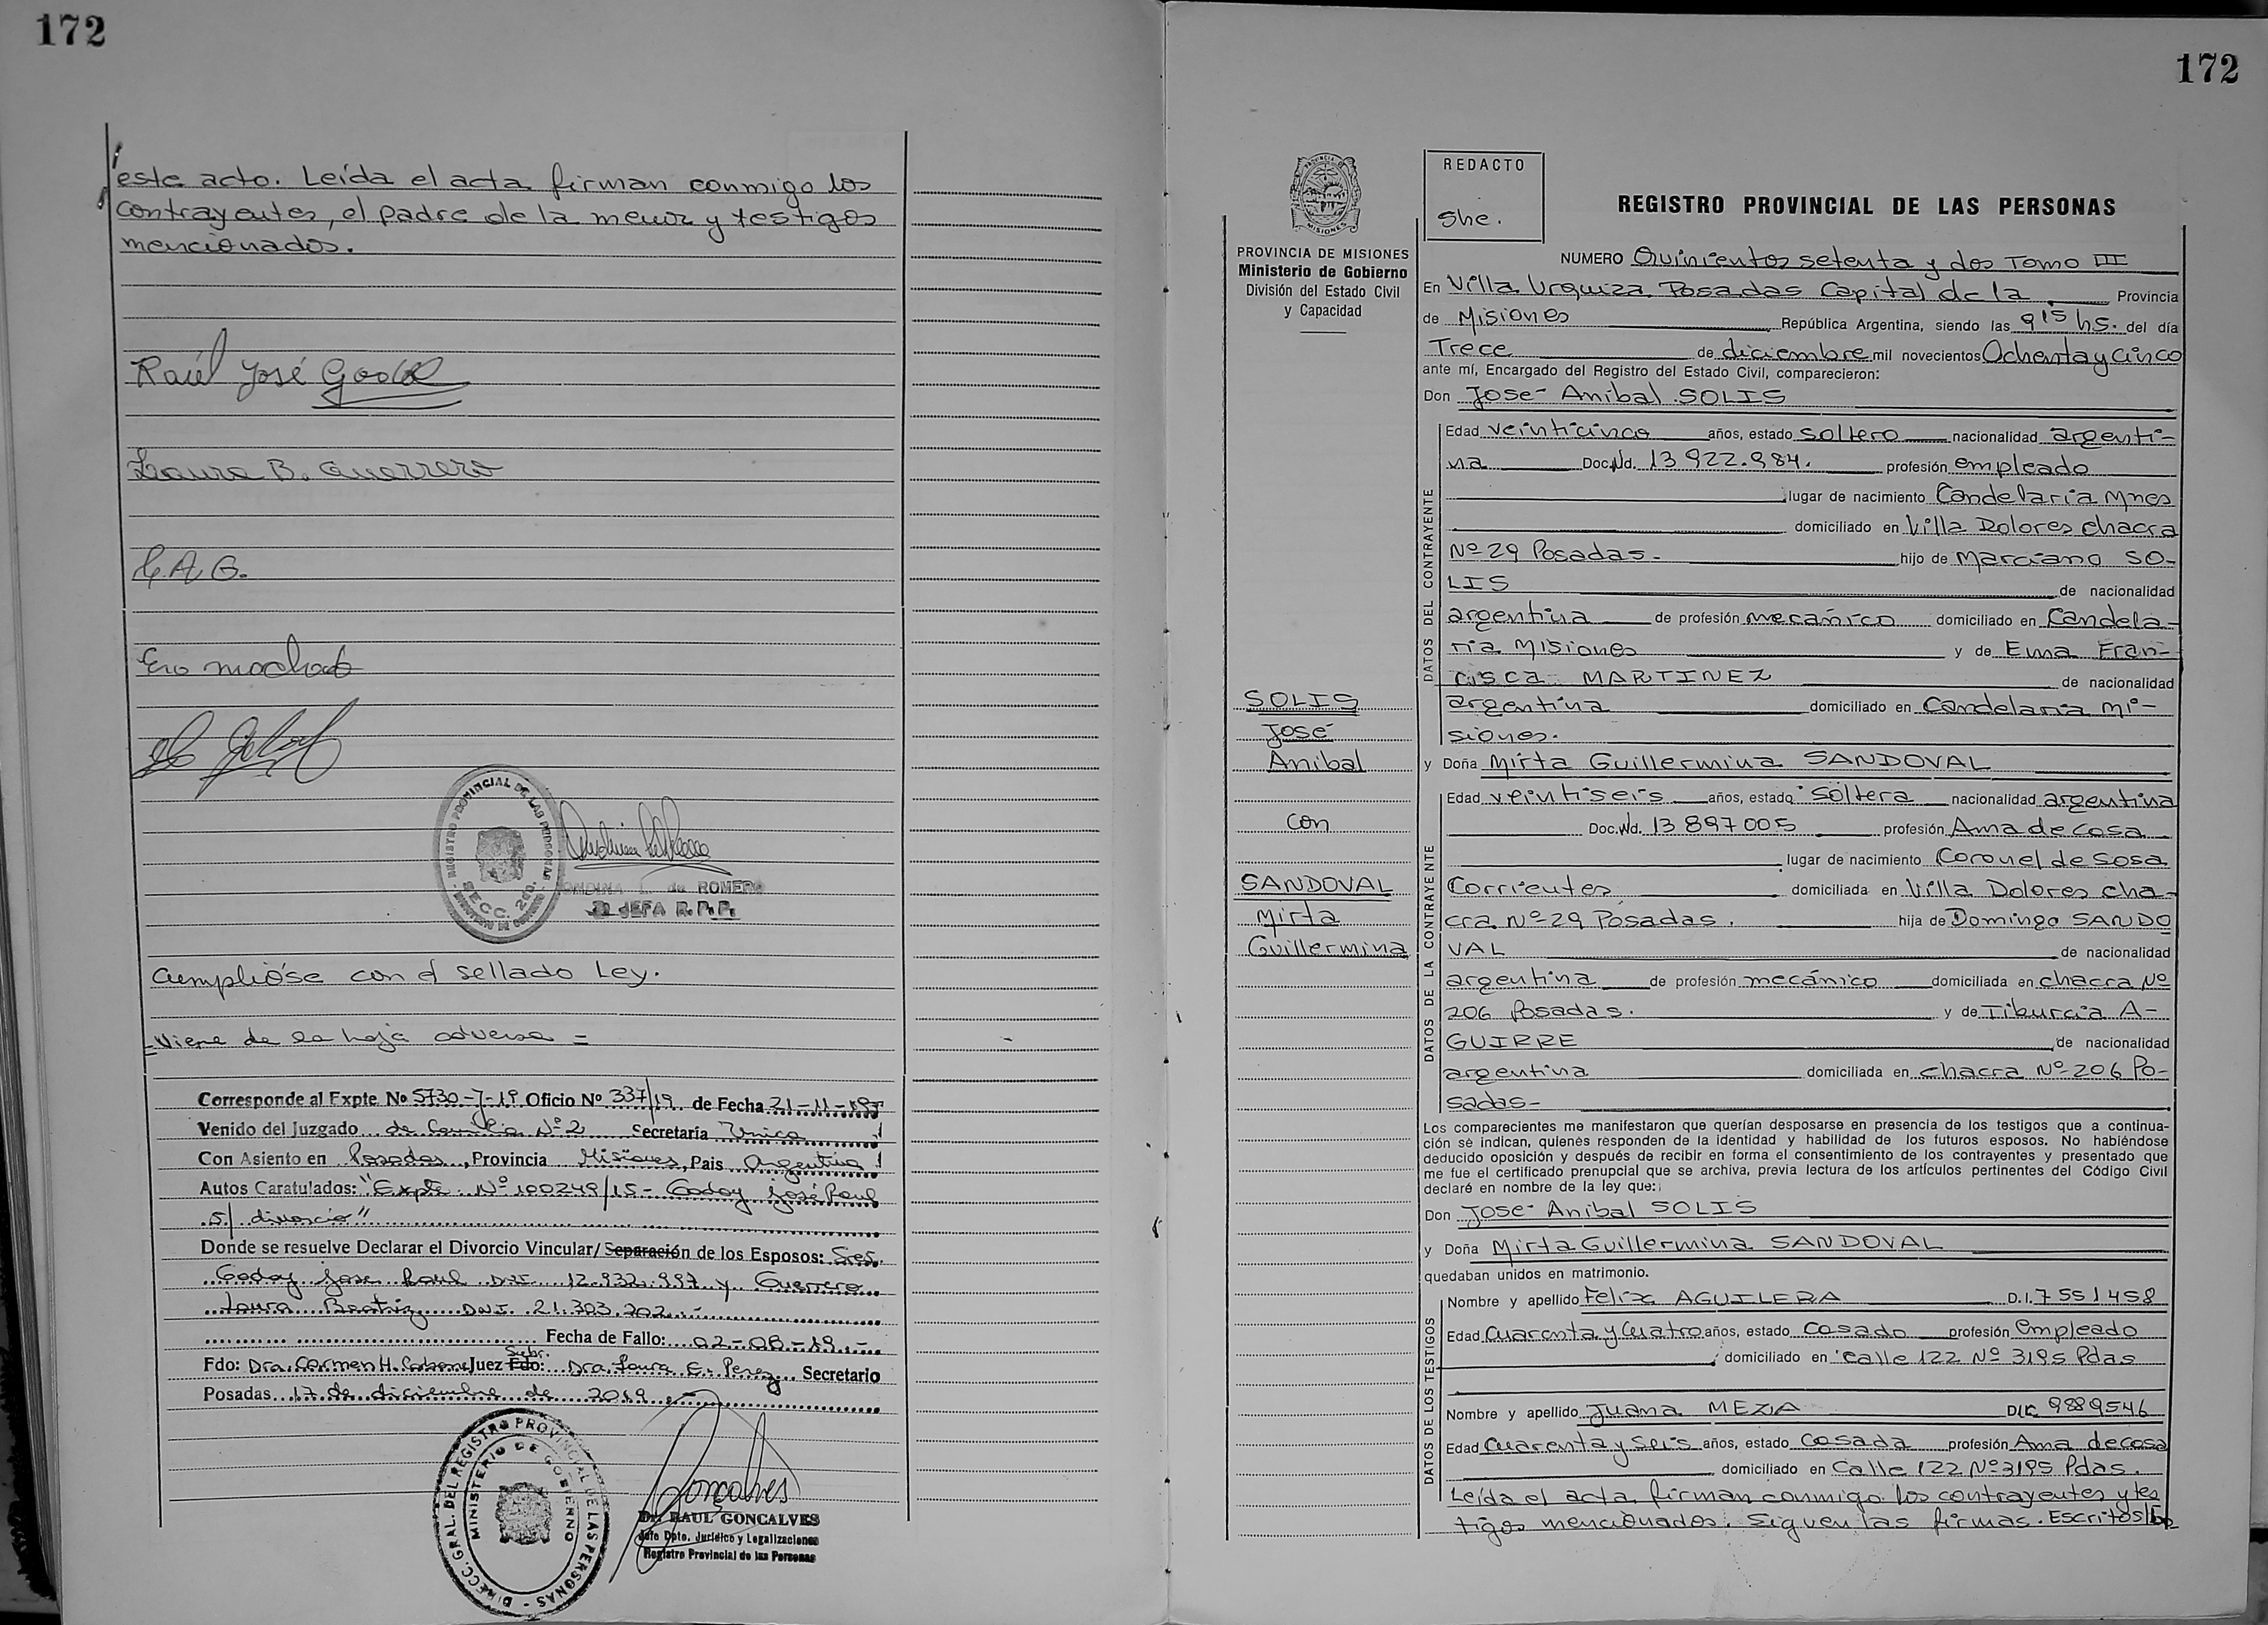 172
este acto. Leída el acta firman conmigo los
contrayentes, el padre de la menor y testigos
mencionados.
Raúl José
Laura B. Guerrero
REGISTRO PROVINCIAL DE LAS PERSONAS
SECC. 2da.
ONDINA L. de ROMERO
JEFA R.P.P.
Cumplióse con el sellado Ley.
=Viene de la hoja adversa=
Corresponde al Expte. Nº 5730-J-19 Oficio Nº 337/19 de Fecha 21-11-19
Venido del Juzgado de Familia Nº 2 Secretaría Unica
Con Asiento en Posadas, Provincia Misiones, Pais Argentina
Autos Caratulados: "Expte. Nº 100249/15 - Godoy José Raul
s/ divorcio"
Donde se resuelve Declarar el Divorcio Vincular/Separación de los Esposos: Sres.
Godoy Jose Raul DNI 12.932.997 y Guerrero
Laura Beatriz DNI. 21.303.202.-
Fecha de Fallo: 02-08-19.-
Subr.
Fdo: Dra. Carmen H. Juez Fdo: Dra. Laura E. Perez Secretario
Posadas 17 de diciembre de 2019.-
DIRECC. GRAL. DEL REGISTRO PROVINCIAL DE LAS PERSONAS
MINISTERIO DE GOBIERNO
Goncalves
Dr. RAUL GONCALVES
Jefe Dpto. Jurídico y Legalizaciones
Registro Provincial de las Personas
172
PROVINCIA DE MISIONES
Ministerio de Gobierno
División del Estado Civil
y Capacidad
SOLIS
José
Anibal
con
SANDOVAL
Mirta
Guillermina
REDACTO
She.
REGISTRO PROVINCIAL DE LAS PERSONAS
NUMERO Quinientos setenta y dos Tomo III
En Villa Urquiza Posadas Capital de la Provincia
de Misiones República Argentina, siendo las 9 15 hs. del día
Trece de diciembre mil novecientos Ochenta y cinco
ante mí, Encargado del Registro del Estado Civil, comparecieron:
Don José Anibal SOLIS
DATOS DEL CONTRAYENTE
Edad veinticinco años, estado soltero nacionalidad argenti-
na Doc. Nd. 13 922.984. profesión empleado
lugar de nacimiento Candelaria Mnes
domiciliado en Villa Dolores chacra
Nº 29 Posadas- hijo de Marciano SO-
LIS de nacionalidad
argentina de profesión mecánico domiciliado en Candela-
ria Misiones y de Ema Fran-
cisca MARTINEZ de nacionalidad
argentina domiciliado en Candelaria Mi-
siones.
y Doña Mirta Guillermina SANDOVAL
DATOS DE LA CONTRAYENTE
Edad veintiseis años, estado soltera nacionalidad argentina
Doc. Nd. 13 897005 profesión Ama de casa
lugar de nacimiento Coronel de Sosa
Corrientes domiciliada en Villa Dolores cha-
cra Nº 29 Posadas. hija de Domingo SANDO
VAL de nacionalidad
argentina de profesión mecánico domiciliada en chacra Nº
206 Posadas. y de Tiburcia A-
GUIRRE de nacionalidad
argentina domiciliada en chacra Nº 206 Po-
sadas-
Los comparecientes me manifestaron que querían desposarse en presencia de los testigos que a continua-
ción se indican, quienes responden de la identidad y habilidad de los futuros esposos. No habiéndose
deducido oposición y después de recibir en forma el consentimiento de los contrayentes y presentado que
me fue el certificado prenupcial que se archiva, previa lectura de los artículos pertinentes del Código Civil
declaré en nombre de la ley que:
Don José Anibal SOLIS
y Doña Mirta Guillermina SANDOVAL
quedaban unidos en matrimonio.
DATOS DE LOS TESTIGOS
Nombre y apellido Felix AGUILERA D.I. 7 551 458
Edad Cuarenta y Cuatro años, estado casado profesión empleado
domiciliado en calle 122 Nº 3195 Pdas
Nombre y apellido Juana MEZA D.I.C. 9889546
Edad Cuarenta y seis años, estado casada profesión Ama de casa
domiciliado en Calle 122 Nº 3195 Pdas.
Leída el acta firman conmigo los contrayentes y tes
tigos mencionados. Siguen las firmas. Escritos